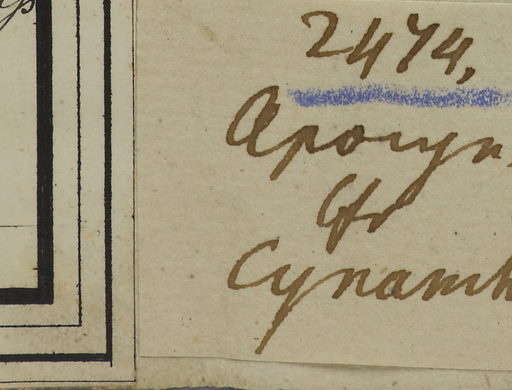 2474,
Apocyn
Cynamch